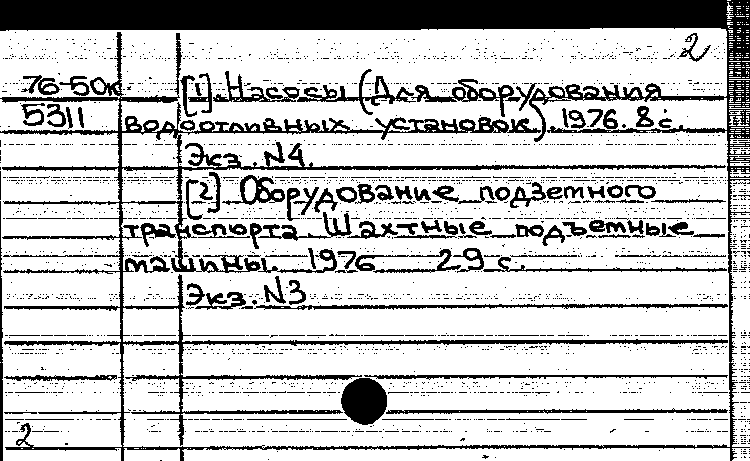 2
76-50к [1]. Насосы (Для оборудования
5311 водоотливных установок). 1976. 8 с.
Экз. N4.
[2] Оборудование подземного
транспорта. Шахтные подъемные
машины. 1976 29 с.
Экз. N3
2